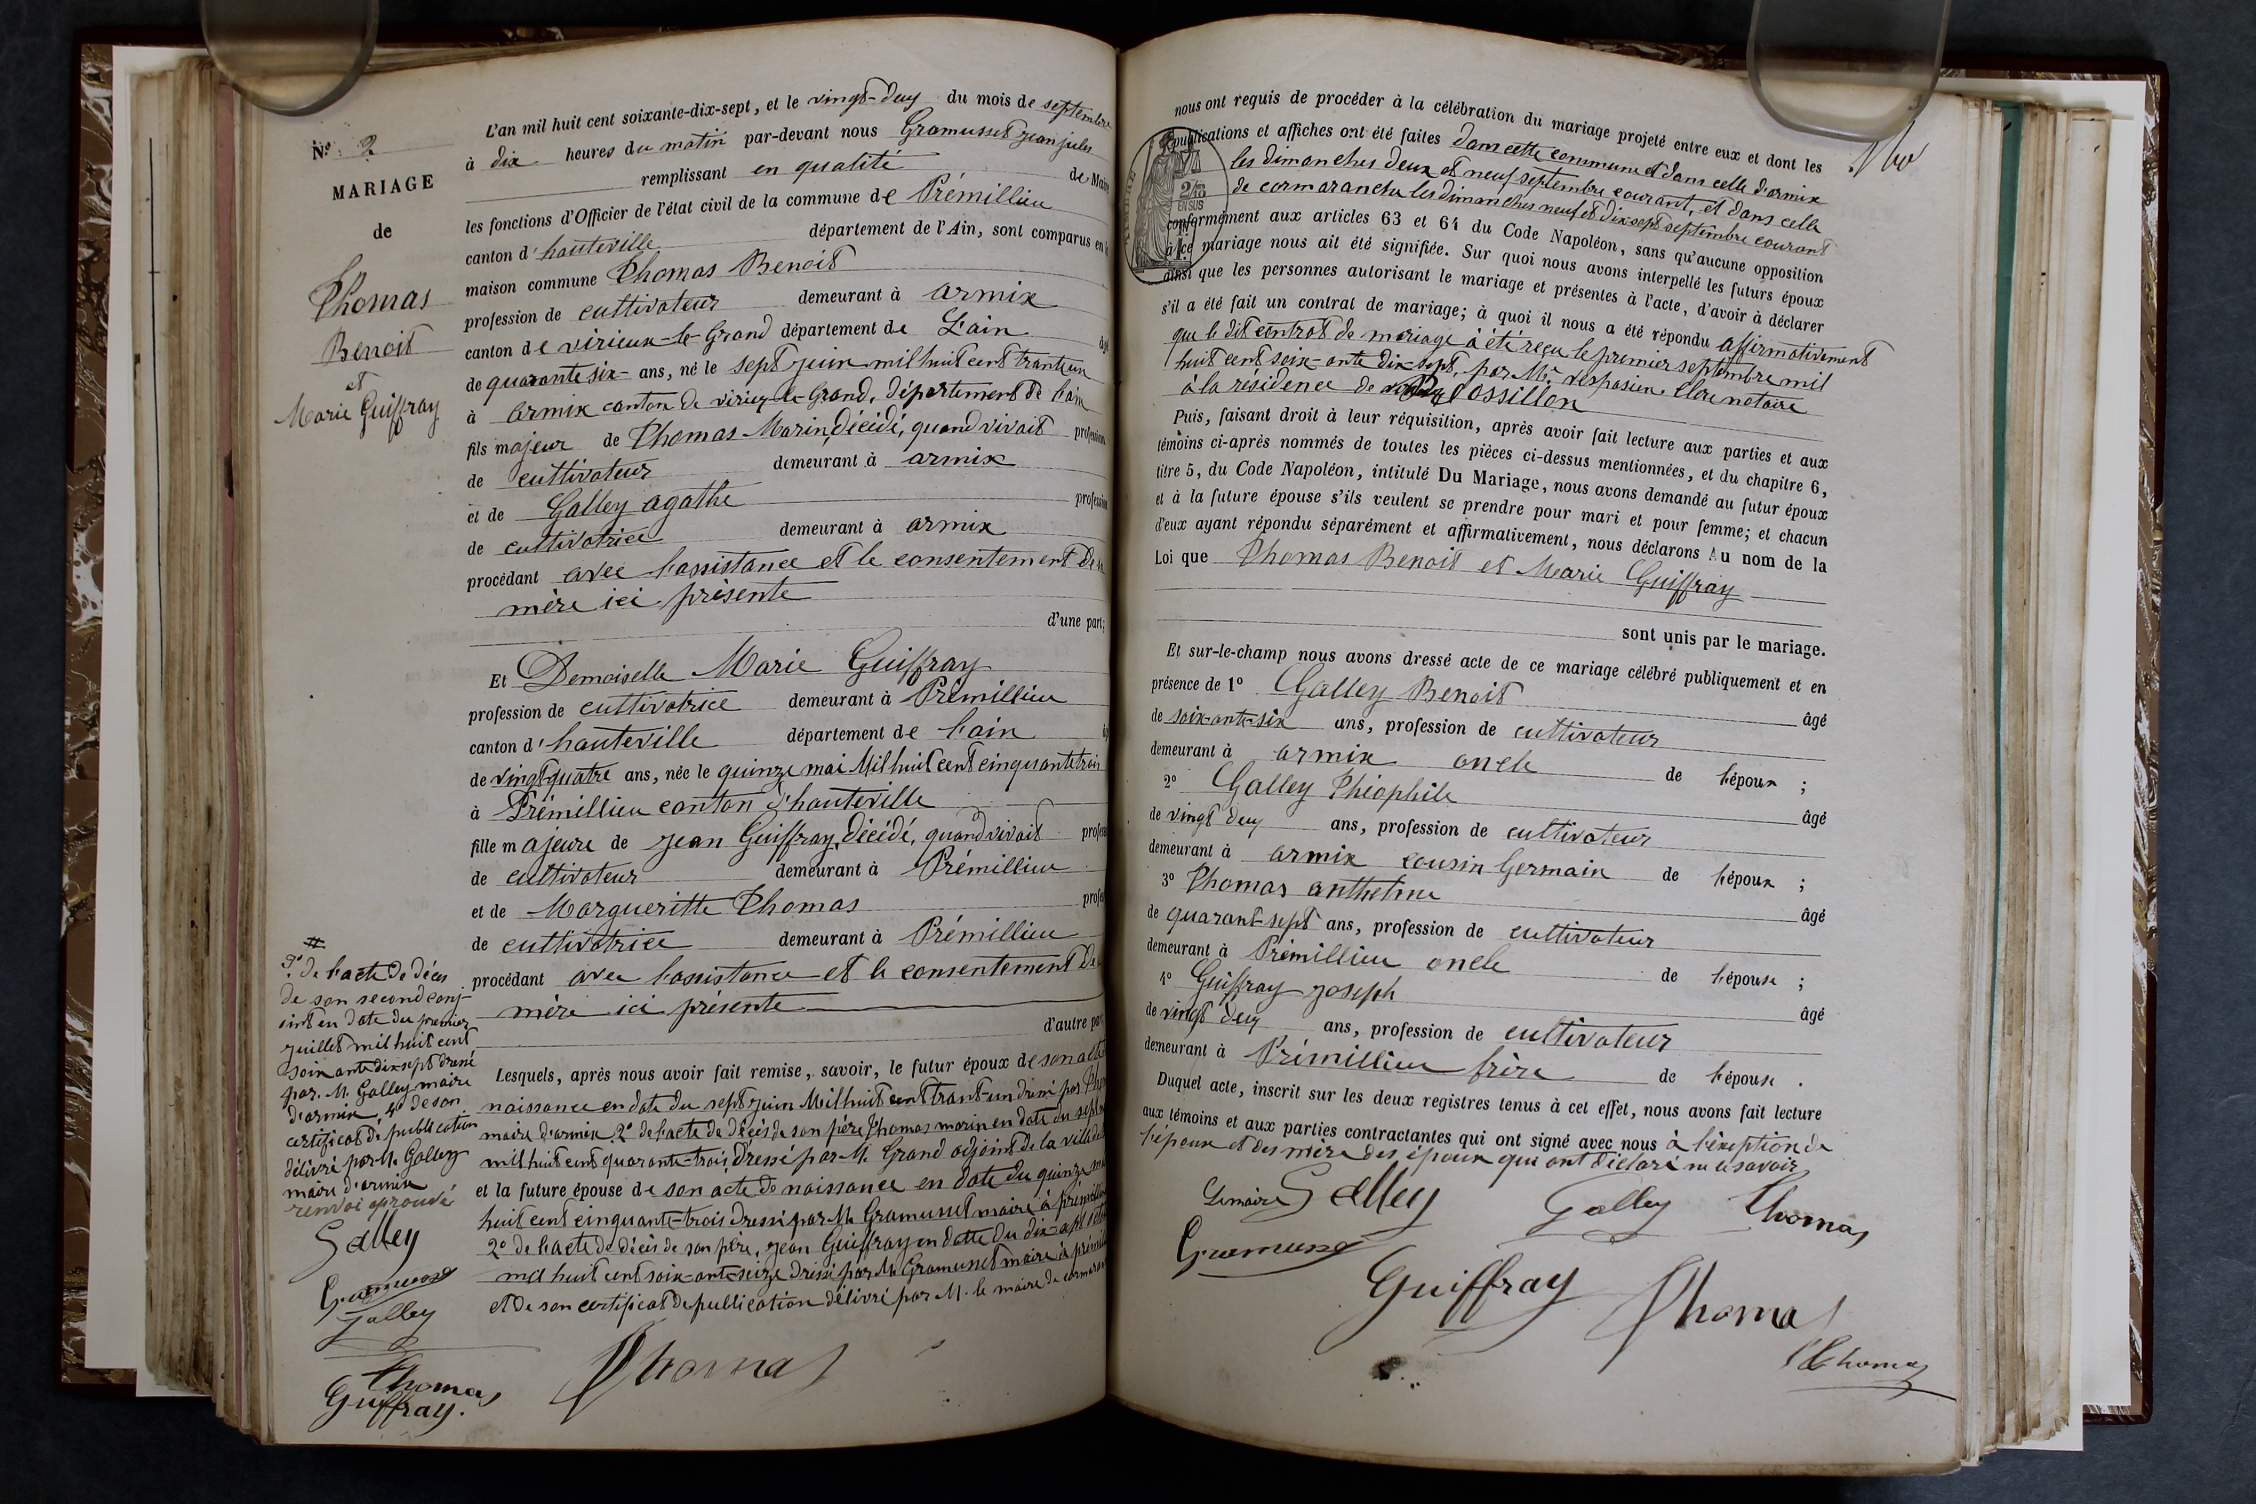 N° 2
MARIAGE
de
Thomas
Benoit
et
Marie Guiffray
L'an mil huit cent soixante-dix-sept, et le vingt-deux du mois de septembre
à dix heures du matin par-devant nous Gramusset jean jules
remplissant en qualité de Maire
les fonctions d'Officier de l'état civil de la commune de Prémillieu
canton d'hauteville département de l'Ain, sont comparus en la
maison commune Thomas Benoit
profession de cultivateur demeurant à armix
canton de virieux-le-Grand département de L'ain âgé
de quarante six- ans, né le sept juin mil huit cent trante un
à armix canton de virieux-le-Grand, département de l'ain
fils majeur de Thomas Marin, décédé, quand vivait profession
de cultivateur demeurant à armix
et de Galley agathe profession
de cultivatrice demeurant à armix
procédant avec l'assistance et le consentement de sa
mère ici présente
d'une part;
Et Demoiselle Marie Guiffray
profession de cultivatrice demeurant à Prémillieu
canton d'hauteville département de l'ain
de vingt quatre ans, née le quinze mai Mil huit cent cinquante trois
à Prémillieu canton d'hauteville
fille majeure de jean Guiffray, décédé, quand vivait profess
de cultivateur demeurant à Prémillieu
et de Margueritte Thomas profes
de cultivatrice demeurant à Prémillieu
procédant avec l'assistance et le consentement de
mère ici présente
d'autre par
Lesquels, après nous avoir fait remise, savoir, le futur époux de son acte
naissance en date du sept juin Mil huit cent trant-un dressé par
maire d'armix, 2° de l'acte de décès de son père Thomas marin en date du sept
mil huit cent quarante-trois, dressé par M. Grand adjoint de la ville de
et la future épouse de son acte de naissance en date du quinze mai
huit cent cinquante-trois dressé par M. Gramusset maire à prémillieu
2° de l'acte de décès de son père, jean Guiffray en datte du dix-
mil huit cent soix-ant-seize dressé par M. Gramusset maire à prémil
et de son certificat de publication délivré par M. le maire de cormaran
#
3° de l'acte de décès
de son second conj-
oint en date du premier
juillet mil huit cent
soix ante dix sept dressé
par M. Galley maire
d'armix, 4° de son
certificat de publication
délivré par M. Galley
maire d'armix
renvoi aprouvé
Galley
Gramusset
Galley
Thomas
Guiffray.
Thomas
nous ont requis de procéder à la célébration du mariage projeté entre eux et dont les
publications et affiches ont été faites dans cette commune et dans celle d'armix
les dimanches deux et neuf septembre courant, et dans celle
de cormaranche les dimanches neuf et dix sept septembre courant
conformément aux articles 63 et 64 du Code Napoléon, sans qu'aucune opposition
à ce mariage nous ait été signifiée. Sur quoi nous avons interpellé les futurs époux
ainsi que les personnes autorisant le mariage et présentes à l'acte, d'avoir à déclarer
s'il a été fait un contrat de mariage; à quoi il nous a été répondu affirmativement
que le dit contrat de mariage à été reçu le premier septembre mil
huit cent soix-ante dix-sept, par Me. vespasien Clerc notaire
à la résidence de Rossillon
Puis, faisant droit à leur réquisition, après avoir fait lecture aux parties et aux
témoins ci-après nommés de toutes les pièces ci-dessus mentionnées, et du chapitre 6,
titre 5, du Code Napoléon, intitulé Du Mariage, nous avons demandé au futur époux
et à la future épouse s'ils veulent se prendre pour mari et pour femme; et chacun
d'eux ayant répondu séparément et affirmativement, nous déclarons Au nom de la
Loi que Thomas Benoit et Marie Guiffray
sont unis par le mariage.
Et sur-le-champ nous avons dressé acte de ce mariage célébré publiquement et en
présence de 1° Galley Benoit âgé
de soix-ante-six ans, profession de cultivateur
demeurant à armix oncle de l'époux ;
2° Galley Théophile âgé
de vingt deux ans, profession de cultivateur
demeurant à armix cousin Germain de l'époux ;
3° Thomas anthelme âgé
de quarant-sept ans, profession de cultivateur
demeurant à Prémillieu oncle de l'épouse ;
4° Guiffray joseph âgé
de vingt deux ans, profession de cultivateur
demeurant à Prémillieu frère de l'épouse .
Duquel acte, inscrit sur les deux registres tenus à cet effet, nous avons fait lecture
aux témoins et aux parties contractantes qui ont signé avec nous à l'éxeption de
l'époux et des mère des époux qui ont déclaré ne le savoir
Le maire Galley Galley Thomas
Gramusset
Guiffray Thomas
Thomas
2/10
EN SUS